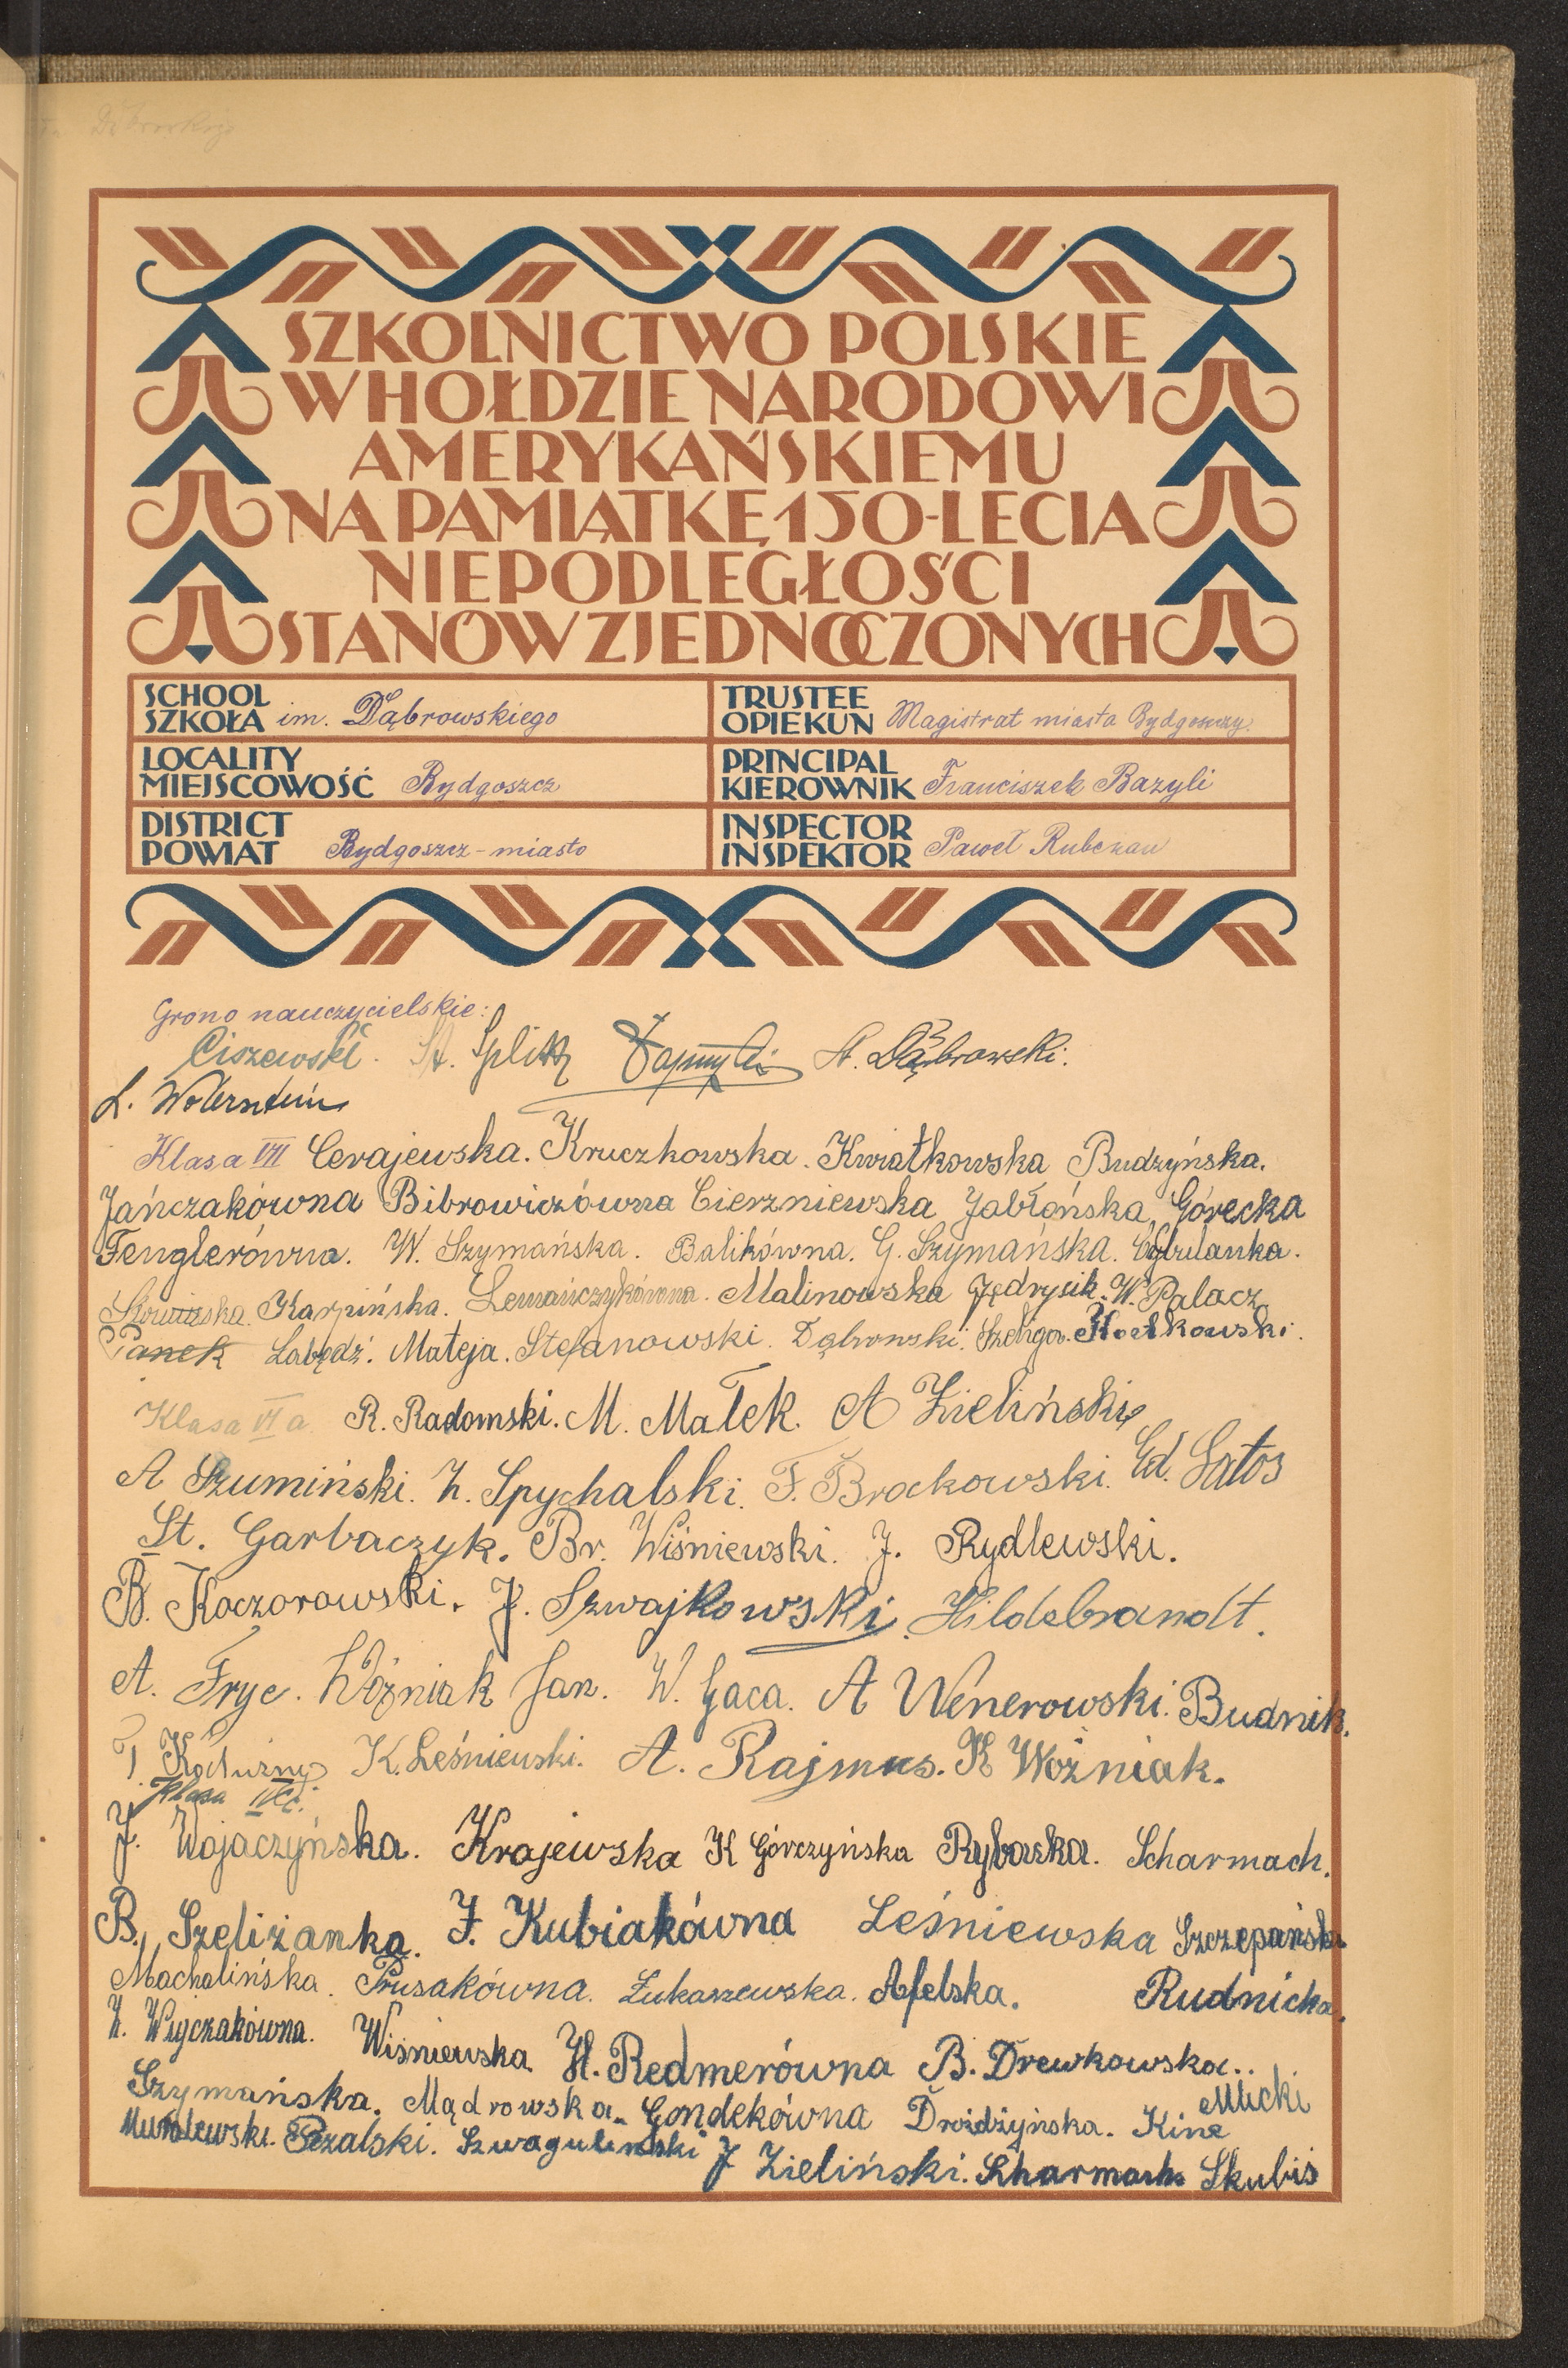 Dąbrowskiego
SZKOLNICTWO POLSKIE
W HOŁDZIE NARODOWI
AMERYKAŃSKIEMU
NA PAMIĄTKĘ 150-LECIA
NIEPODLEGŁOŚCI
STANÓW ZJEDNOCZONYCH
SCHOOL
SZKOŁA im. Dąbrowskiego
TRUSTEE
OPIEKUN Magistrat miasta Bydgoszczy.
LOCALITY
MIEJSCOWOŚĆ Bydgoszcz
PRINCIPAL
KIEROWNIK Franciszek Bazyli
DISTRICT
POWIAT Bydgoszcz-miasto
INSPECTOR
INSPEKTOR Paweł
Grono nauczycielskie:
Ciszewski. St. Splitt A. Dąbrowski.
L.
Klasa VII Cerajewska. Kruczkowska. Kwiatkowska Budzyńska.
Jańczakówna Bibrowiczówna Cierzniewska Jabłońska, Górecka
Fenglerówna. W. Szymańska. Balikówna. G. Szymańska. Cybulanka.
Karpińska. Lemańczykówna. Malinowska Jędrysik. W. Palacz
Panek Łabędź. Mateja. Stefanowski. Dąbrowski. Szeliga.
Klasa VI a R. Radomski. M. Małek. A Zieliński
A Szumiński. Z. Spychalski. F. Brockowski. Ed. Latos
St. Garbaczyk. Br. Wiśniewski. J. Rydlewski.
B. Kaczorowski. J. Szwajkowski. Hildebrandt.
A. Fryc. Woźniak Jan. W. Gaca. A Wenerowski. Budnik.
T. Kałużny K. Leśniewski. A. Rajmus. K Woźniak.
Klasa
J. Wojaczyńska. Krajewska K Górczyńska Rybacka. Scharmach.
B. Szeliżanka. F. Kubiakówna Leśniewska Szczepańska
Machalińska. Prusakówna. Łukaszewska. Afelska. Rudnicka.
Z. Wiśniewska H. Redmerówna B. Drewkowska..
Szymańska. Mądrowska. Gondekówna Drożdżyńska. Kine Mucki
Pezalski. Szwaguliński J Zieliński. Scharmach Skubis